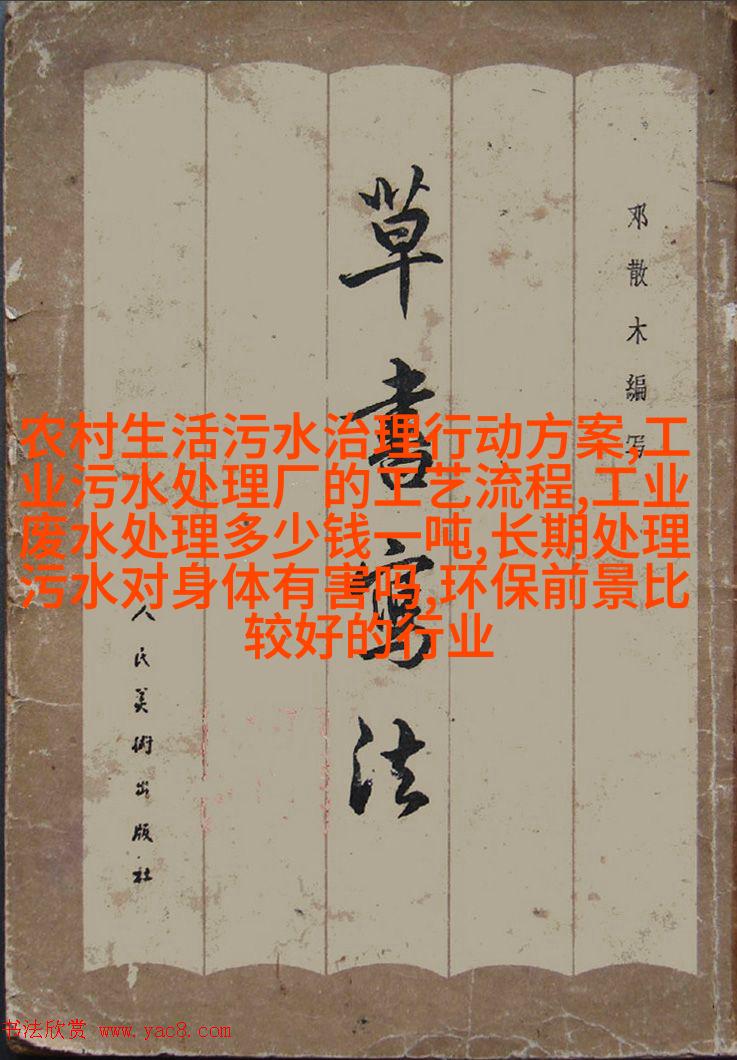 邓散木編写
草書寫法
人民美術出版社
农村生活污水治理行动方案,工
业污水处理厂的工艺流程,工业
废水处理多少钱一吨,长期处理
污水对身体有害吗,环保前景比
较好的行业
书法欣赏 www.yac8.com